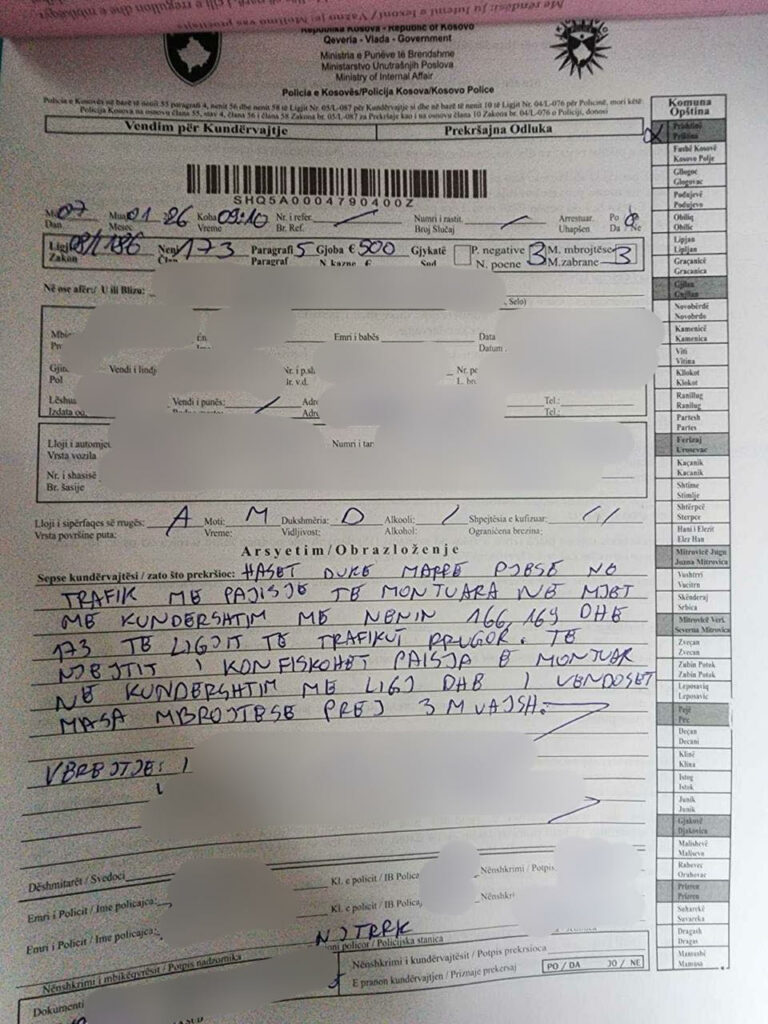 Republika Kosova - Republic of Kosovo
Qeveria - Vlada - Government
Ministria e Punëve të Brendshme
Ministarstvo Unutrašnjih Poslova
Ministry of Internal Affair
Policia e Kosovës/Policija Kosova/Kosovo Police
Policia e Kosovës në bazë të nenit 55 paragrafi 4, nenit 56 dhe nenit 58 të Ligjit Nr. 05/L-087 për Kundërvajtje si dhe në bazë të nenit 10 të Ligjit Nr. 04/L-076 për Policinë, mori këtë
Policija Kosova na osnovu člana 55, stav 4, člana 56 i člana 58 Zakona br. 05/L-087 za Prekršaje kao i na osnovu člana 10 Zakona br. 04/L-076 o Policiji, donosi
Vendim për Kundërvajtje Prekršajna Odluka
SHQ5A0004790400Z
07 01 26 Koha 09:10 Nr. i refer. Numri i rastit. Arrestuar. Po
Dan Mesec Vreme Br. Ref. Broj Slučaj Uhapšen Da Ne
Ligj 08/L-186 Neni 173 Paragrafi 5 Gjoba € 500 Gjykatë P. negative 3 M. mbrojtëse 3
Zakon Paragraf N. kazne € Sud N. poene M.zabrane
Në ose afër:/ U ili Blizu:
Selo)
Emri i babës Data
Datum
Vendi i lindj Nr. i p.sh.
Pol
Lëshua Vendi i punës: Tel.:
Izdata od Tel.:
Lloji i automje Numri i tar
Vrsta vozila
Nr. i shasisë
Br. šasije
Lloji i sipërfaqes së rrugës: A Moti: M Dukshmëria: D Alkooli: / Shpejtësia e kufizuar: //
Vrsta površine puta: Vreme: Vidljivost: Alkohol: Ograničena brzina:
Arsyetim/Obrazloženje
Sepse kundërvajtësi / zato što prekršioc: HASET DUKE MARRË PJESË NË
TRAFIK ME PAJISJE TE MONTUARA NË MJET
ME KUNDËRSHTIM ME NENIN 166, 169 DHE
173 TË LIGJIT TË TRAFIKUT RRUGOR. TË
NJEJTIT I KONFISKOHET PAISJA E MONTUAR
NË KUNDËRSHTIM ME LIGJ DHE I VENDOSET
MASA MBROJTESE PREJ 3 MUAJSH.
VËREJTJE: I
Dëshmitarët / Svedoci
Emri i Policit / Ime policajca: Kl. e policit / IB Polica Nënshkrimi / Potpis
Emri i Policit / Ime policajca: Kl. e policit / IB Polica Nënshkri
NJTRRK
Nënshkrimi i mbikëqyrësit / Potpis nadzornika policor / Policijska stanica
Nënshkrimi i kundërvajtësit / Potpis prekrsioca
E pranon kundërvajtjen / Priznaje prekersaj PO / DA JO / NE
Dokumenti
Komuna
Opština
Prishtinë
Priština
Fushë Kosovë
Kosovo Polje
Gllogoc
Glogovac
Podujevë
Podujevo
Obiliq
Obilic
Lipjan
Lipljan
Graçanicë
Gracanica
Gjilan
Gnjilan
Novobërdë
Novobrdo
Kamenicë
Kamenica
Viti
Vitina
Kllokot
Klokot
Ranillug
Ranilug
Partesh
Partes
Ferizaj
Urosevac
Kaçanik
Kacanik
Shtime
Stimlje
Shtërpcë
Sterpce
Hani i Elezit
Elez Han
Mitrovicë Jugu
Juzna Mitrovica
Vushtrri
Vucitrn
Skënderaj
Srbica
Mitrovicë Veri.
Severna Mitrovica
Zveçan
Zvecan
Zubin Potok
Zubin Potok
Leposaviq
Leposavic
Pejë
Pec
Deçan
Decani
Klinë
Klina
Istog
Istok
Junik
Junik
Gjakovë
Djakovica
Malishevë
Malisevo
Rahovec
Orahovac
Prizren
Prizren
Suharekë
Suvareka
Dragash
Dragas
Mamushë
Mamusa